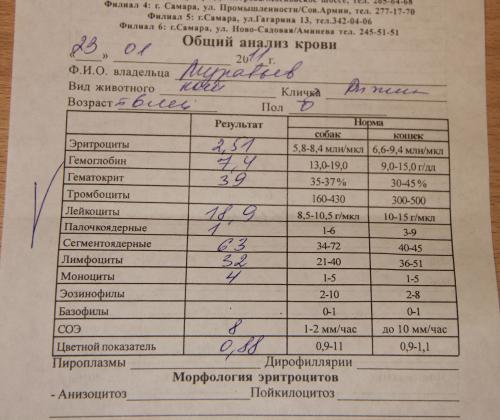 Филиал 4: г. Самара, ул. Промышленности/Сов.Армии, тел. 277-17-70
Филиал 5: г.Самара, ул.Гагарина 13, тел.342-04-06
Филиал 6: г.Самара, ул. Ново-Садовая/Аминева тел. 245-51-51
Общий анализ крови
«23» 01 2011 г.
Ф.И.О. владельца Муравьев
Вид животного кот Кличка Рыжик
Возраст Пол
Результат Норма
собак кошек
Эритроциты 2,51 5,8-8,4 млн/мкл 6,6-9,4 млн/мкл
Гемоглобин 7,4 13,0-19,0 9,0-15,0 г/дл
Гематокрит 39 35-37% 30-45 %
Тромбоциты 160-430 300-500
Лейкоциты 18,9 8,5-10,5 г/мкл 10-15 г/мкл
Палочкоядерные 1 1-6 3-9
Сегментоядерные 63 34-72 40-45
Лимфоциты 32 21-40 36-51
Моноциты 4 1-5 1-5
Эозинофилы 2-10 2-8
Базофилы 0-1 0-1
СОЭ 8 1-2 мм/час до 10 мм/час
Цветной показатель 0,88 0,9-11 0,9-1,1
Пироплазмы Дирофиллярии
Морфология эритроцитов
- Анизоцитоз Пойкилоцитоз